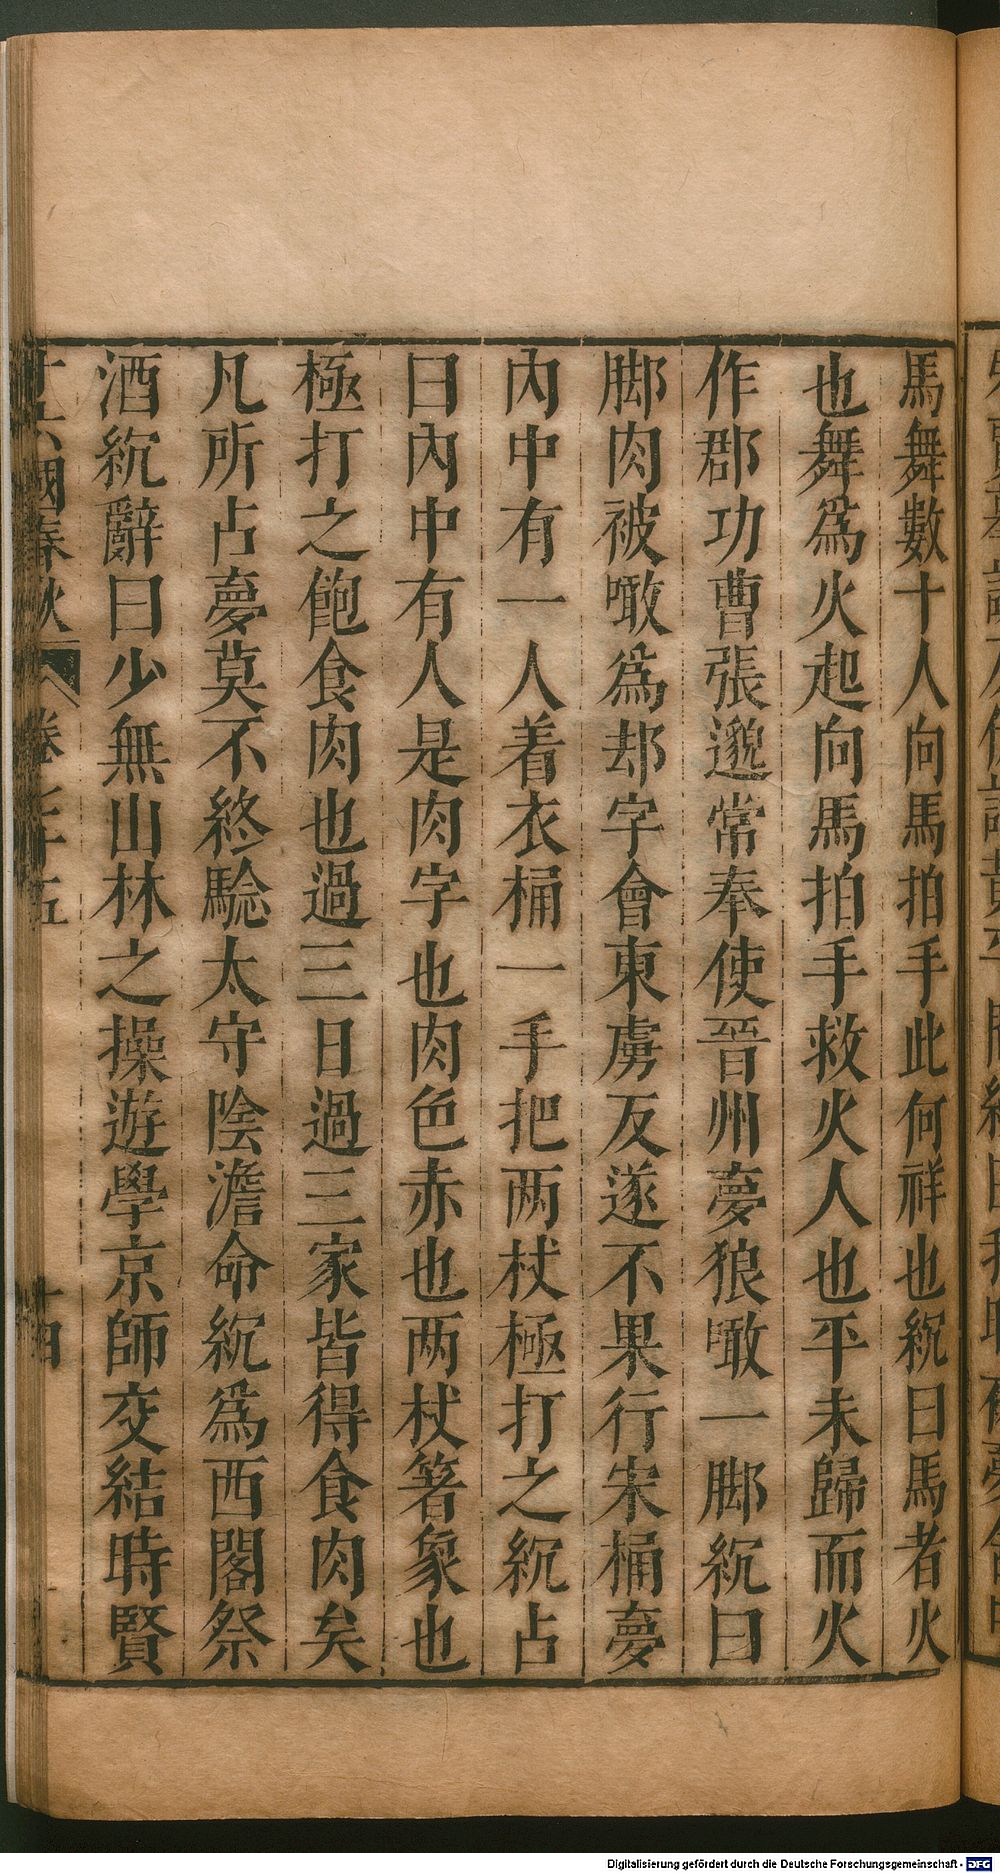 馬舞數十人向馬拍手此何祥也紞曰馬者火
也舞爲火起向馬拍手救火人也平未歸而火
作郡功曹張邈常奉使晉州夢狼噉一脚紞曰
脚肉被噉爲却字會東虜反遂不果行宋桶夢
內中有一人着衣桶一手把两杖極打之紞占
曰內中有人是肉字也肉色赤也两杖箸象也
極打之飽食肉也過三日過三家皆得食肉矣
凡所占夢莫不終驗太守陰澹命紞爲西閣祭
酒紞辭曰少無山林之操遊學京師交結時賢
十六國春秋 卷七十五 十四
Digitalisierung gefördert durch die Deutsche Forschungsgemeinschaft - DFG